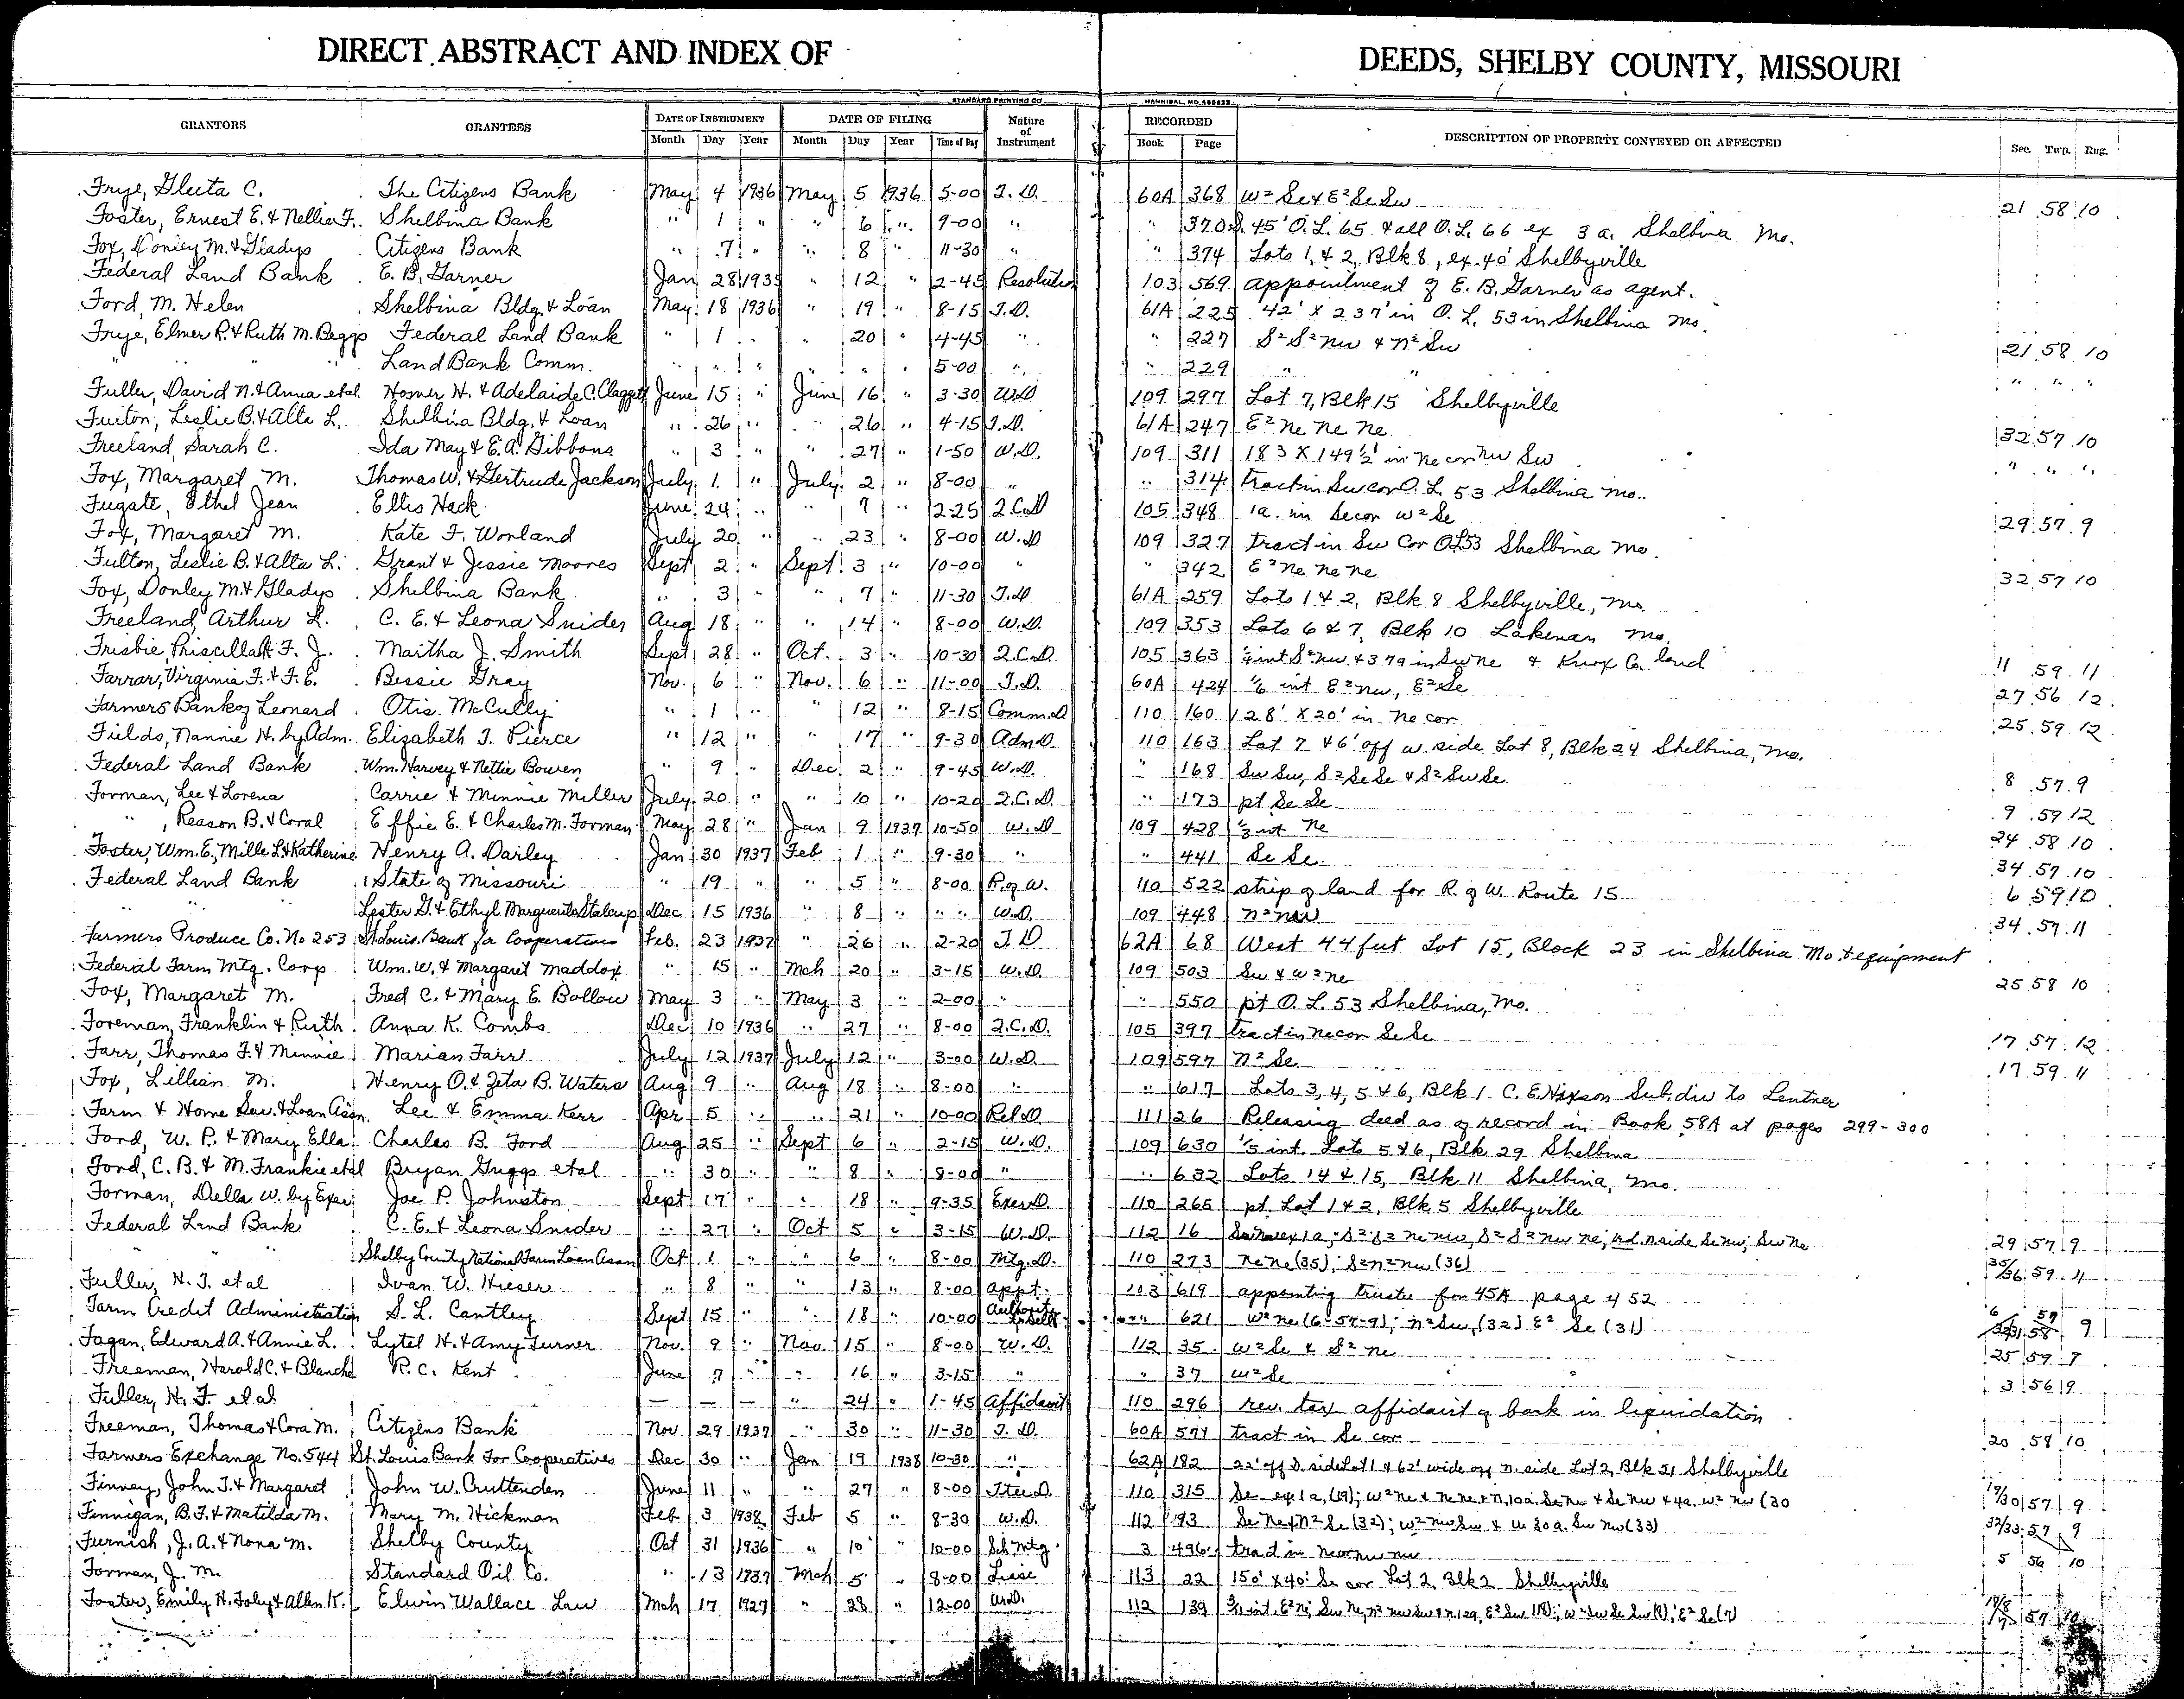 DIRECT ABSTRACT AND INDEX OF DEEDS, SHELBY COUNTY, MISSOURI
STANDARD PRINTING CO. HANNIBAL, MO.
GRANTORS GRANTEES DATE OF INSTRUMENT DATE OF FILING Nature of Instrument RECORDED DESCRIPTION OF PROPERTY CONVEYED OR AFFECTED Sec. Twp. Rng.
Month Day Year Month Day Year Time of Day Book Page
Frye, Gleeta C. The Citizens Bank May 4 1936 May 5 1936 5-00 T. D. 60A 368 W² Se & E² Se Sw 21 58 10
Foster, Ernest E. & Nellie F. Shelbina Bank " 1 " " 6 " 9-00 " " 370 S. 45' O. L. 65 & all O. L. 66 ex 3 a. Shelbina Mo.
Fox, Donley M. & Gladys Citizens Bank " 7 " " 8 " 11-30 " " 374 Lots 1 & 2, Blk 8, ex. 40' Shelbyville
Federal Land Bank E. B. Garner Jan 28 1935 " 12 " 2-45 Resolution 103 569 appointment of E. B. Garner as agent.
Ford, M. Helen Shelbina Bldg & Loan May 18 1936 " 19 " 8-15 T. D. 61A 225 42' X 237' in O. L. 53 in Shelbina Mo.
Frye, Elmer R. & Ruth M. Beggs Federal Land Bank " 1 " " 20 " 4-45 " " 227 S² S² nw & n² Sw 21 58 10
" " " Land Bank Comm. " " " " " " 5-00 " " 229 " " " " "
Fuller, David N. & Anna etal Homer H. & Adelaide C. Claggett June 15 " June 16 " 3-30 W.D 109 297 Lot 7, Blk 15 Shelbyville
Fulton, Leslie B. & Alta L. Shelbina Bldg. & Loan " 26 " " 26 " 4-15 T. D. 61A 247 E² ne ne ne 32 57 10
Freeland, Sarah C. Ida May & E. A. Gibbons " 3 " " 27 " 1-50 W. D. 109 311 183 X 149½' in ne cor nw Sw " " "
Fox, Margaret M. Thomas W. & Gertrude Jackson July 1 " July 2 " 8-00 " " 314 tract in Sw cor O. L. 53 Shelbina Mo.
Fugate, Ethel Jean Ellis Hack June 24 " " 7 " 2-25 2. C. D 105 348 1a. in Secor W² Se 29 57 9
Fox, Margaret M. Kate F. Worland July 20 " " 23 " 8-00 W. D 109 327 tract in Sw Cor OL53 Shelbina Mo.
Fulton, Leslie B. & Alta L. Grant & Jessie Moores Sept 2 " Sept 3 " 10-00 " " 342 E² ne ne ne 32 57 10
Fox, Donley M. & Gladys Shelbina Bank " 3 " " 7 " 11-30 T. D 61A 259 Lots 1 & 2, Blk 8 Shelbyville, Mo.
Freeland, Arthur L. C. E. & Leona Snider Aug 18 " " 14 " 8-00 W. D. 109 353 Lots 6 & 7, Blk 10 Lakenan Mo.
Frisbie, Priscilla & F. J. Martha J. Smith Sept 28 " Oct. 3 " 10-30 2. C. D. 105 363 int S² nw & 37a in Sw ne & Knox Co. land 11 59 11
Farrar, Virginia F. & F. E. Bessie Gray Nov. 6 " Nov. 6 " 11-00 T. D. 60A 424 1/6 int E² nw, E² Se 27 56 12
Farmers Bank of Leonard Otis McCully " 1 " " 12 " 8-15 Comm. D 110 160 128' X 20' in ne cor 25 59 12
Fields, Nannie H. by Adm. Elizabeth T. Pierce " 12 " " 17 " 9-30 Adm D. 110 163 Lot 7 & 6' off w. side Lot 8, Blk 24 Shelbina, Mo.
Federal Land Bank Wm. Harvey & Nettie Bowen " 9 " Dec 2 " 9-45 W. D. " 168 Sw Sw, S² Se Se & S² Sw Se 8 57 9
Forman, Lee & Lorena Carrie & Minnie Miller July 20 " " 10 " 10-20 2. C. D. " 173 pt Se Se 9 59 12
" , Reason B. & Coral Effie E. & Charles M. Forman May 28 " Jan 9 1937 10-50 W. D 109 428 1/3 int ne 24 58 10
Foster, Wm. E., Mille L. & Katherine Henry A. Dailey Jan 30 1937 Feb 1 " 9-30 " " 441 Se Se. 34 57 10
Federal Land Bank State of Missouri " 19 " " 5 " 8-00 R. of W. 110 522 strip of land for R. of W. Route 15 6 59 10
" " Lester G. & Ethyl Marguerite Stalcup Dec 15 1936 " 8 " " " W. D. 109 448 n² nw 34 57 11
Farmers Produce Co. No 253 St. Louis Bank for Cooperatives Feb. 23 1937 " 26 " 2-20 T. D 62A 68 West 44 feet Lot 15, Block 23 in Shelbina Mo. & equipment
Federal Farm Mtg. Corp Wm. W. & Margaret Maddox " 15 " Mch 20 " 3-15 W. D. 109 503 Sw & W² ne 25 58 10
Fox, Margaret M. Fred C. & Mary E. Bollow May 3 " May 3 " 2-00 " " 550 pt O. L. 53 Shelbina, Mo.
Foreman, Franklin & Ruth Anna K. Combs Dec 10 1936 " 27 " 8-00 2. C. D. 105 397 tract in ne cor Se Se 17 57 12
Farr, Thomas F. & Minnie Marian Farr July 12 1937 July 12 " 3-00 W. D. 109 597 n² Se 17 59 11
Fox, Lillian M. Henry O. & Zeta B. Waters Aug 9 " Aug 18 " 8-00 " " 617 Lots 3, 4, 5 & 6, Blk 1 C. E. Hixson Subdiv to Lentner
Farm & Home Sav. & Loan Assn. Lee & Emma Kerr Apr 5 " " 21 " 10-00 Rel D. 111 26 Releasing deed as of record in Book 58A at pages 299-300
Ford, W. P. & Mary Ella Charles B. Ford Aug 25 " Sept 6 " 2-15 W. D. 109 630 1/5 int. Lots 5 & 6, Blk 29 Shelbina
Ford, C. B. & M. Frankie etal Bryan Griggs etal " 30 " " 8 " 8-00 " " 632 Lots 14 & 15, Blk 11 Shelbina, Mo.
Forman, Della W. by Exer Joe P. Johnston Sept 17 " " 18 " 9-35 Exer D. 110 265 pt. Lot 1 & 2, Blk 5 Shelbyville
Federal Land Bank C. E. & Leona Snider " 27 " Oct 5 " 3-15 W. D. 112 16 ex 1a; S² S² ne nw, S² S² nw ne, n side Se nw; Sw ne 29 57 9
" " Shelby County National Farm Loan Assn Oct 1 " " 6 " 8-00 Mtg. D. 110 273 ne ne (35); S² n² nw (36) 35/36 59 11
Fuller, H. F. et al Ivan W. Hieser " 8 " " 13 " 8-00 appt. 103 619 appointing trustee for 45A page 452
Farm Credit Administration S. L. Cantley Sept 15 " " 18 " 10-00 Authority to Sell " 621 W² ne (6-57-9); n² Sw (32) E² Se (31) 6 57 32/31 58 9
Fagan, Edward A. & Annie L. Lytel H. & Amy Turner Nov. 9 " Nov. 15 " 8-00 W. D. 112 35 W² Se & S² ne 25 59 9
Freeman, Harold C. & Blanche R. C. Kent June 7 " " 16 " 3-15 " " 37 W² Se 3 56 9
Fuller, H. F. et al — — — " 24 " 1-45 Affidavit 110 296 rev. tax affidavit of bank in liquidation
Freeman, Thomas & Cora M. Citizens Bank Nov. 29 1937 " 30 " 11-30 T. D. 60A 571 tract in Se cor 20 58 10
Farmers Exchange No. 544 St. Louis Bank For Cooperatives Dec 30 " Jan 19 1938 10-30 " 62A 182 22' off S. side Lot 1 & 62' wide off n. side Lot 2, Blk 51 Shelbyville
Finney, John T. & Margaret John W. Cruttenden June 11 " " 27 " 8-00 Tster D. 110 315 Se ex 1a (19); W² ne & ne ne & n. 10a. Se ne & Se nw & 4a. W² nw (30 19/30 57 9
Finnigan, B. F. & Matilda M. Mary M. Hickman Feb 3 1938 Feb 5 " 8-30 W. D. 112 93 Se ne & n² Se (32); W² nw Sw & W 30a. Sw nw (33) 32/33 57 9
Furnish, J. A. & Nona M. Shelby County Oct 31 1936 " 10 " 10-00 Sch. Mtg. 3 496 tract in ne cor nw nw 5 56 10
Forman, J. M. Standard Oil Co. " 13 1937 Mch 5 " 8-00 Lease 113 22 150' X 40' Se cor Lot 2, Blk 2 Shelbyville
Foster, Emily H. Toby & Allen K. Elwin Wallace Law Mch 17 1927 " 28 " 12-00 W. D. 112 139 int. E² ne; Sw ne, n² nw Sw & n. 12a. E² Sw (18); W² Sw Se Sw (8); E² Se (7) 57 10